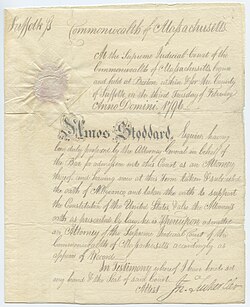 Suffolk ss
Commonwealth of Massachusetts
At the Supreme Judicial Court of the
Commonwealth of Massachusetts begun
and held at Boston within & for the County
of Suffolk on the third Tuesday of February
Anno Domini 1796.
Amos Stoddard, Esquire, having
been duly proposed by the Attorney General on behalf of
the Bar for admission into this Court as an Attorney
thereof, and having now at this Term taken & subscribed
the oath of Allegiance and taken the oath to support
the Constitution of the United States & also the Attorneys
oath as prescribed by law, he is thereupon admitted
an Attorney of the Supreme Judicial Court of the
Commonwealth of Massachusetts accordingly as
appears of Record.
In Testimony whereof I have hereto set
my hand & the Seal of said Court.
Attest Jno. Tucker Cler